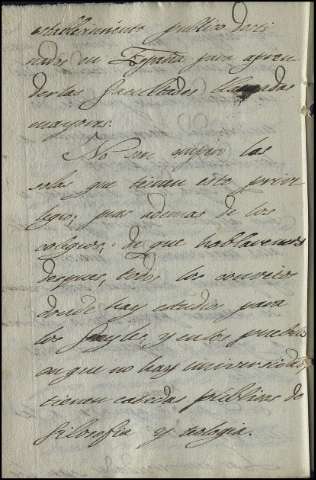 establecimiento publico desti
nados en España para apren
der las facultades llamadas
mayores.
No son empero las
solas que tienen este privi
legio; pues ademas de los
colegios, de que hablaremos
despues, todos los conventos
donde hay estudios para
los frayles, y en los pueblos
en que no hay universidad,
tienen catedras publicas de
filosofia y teologia.